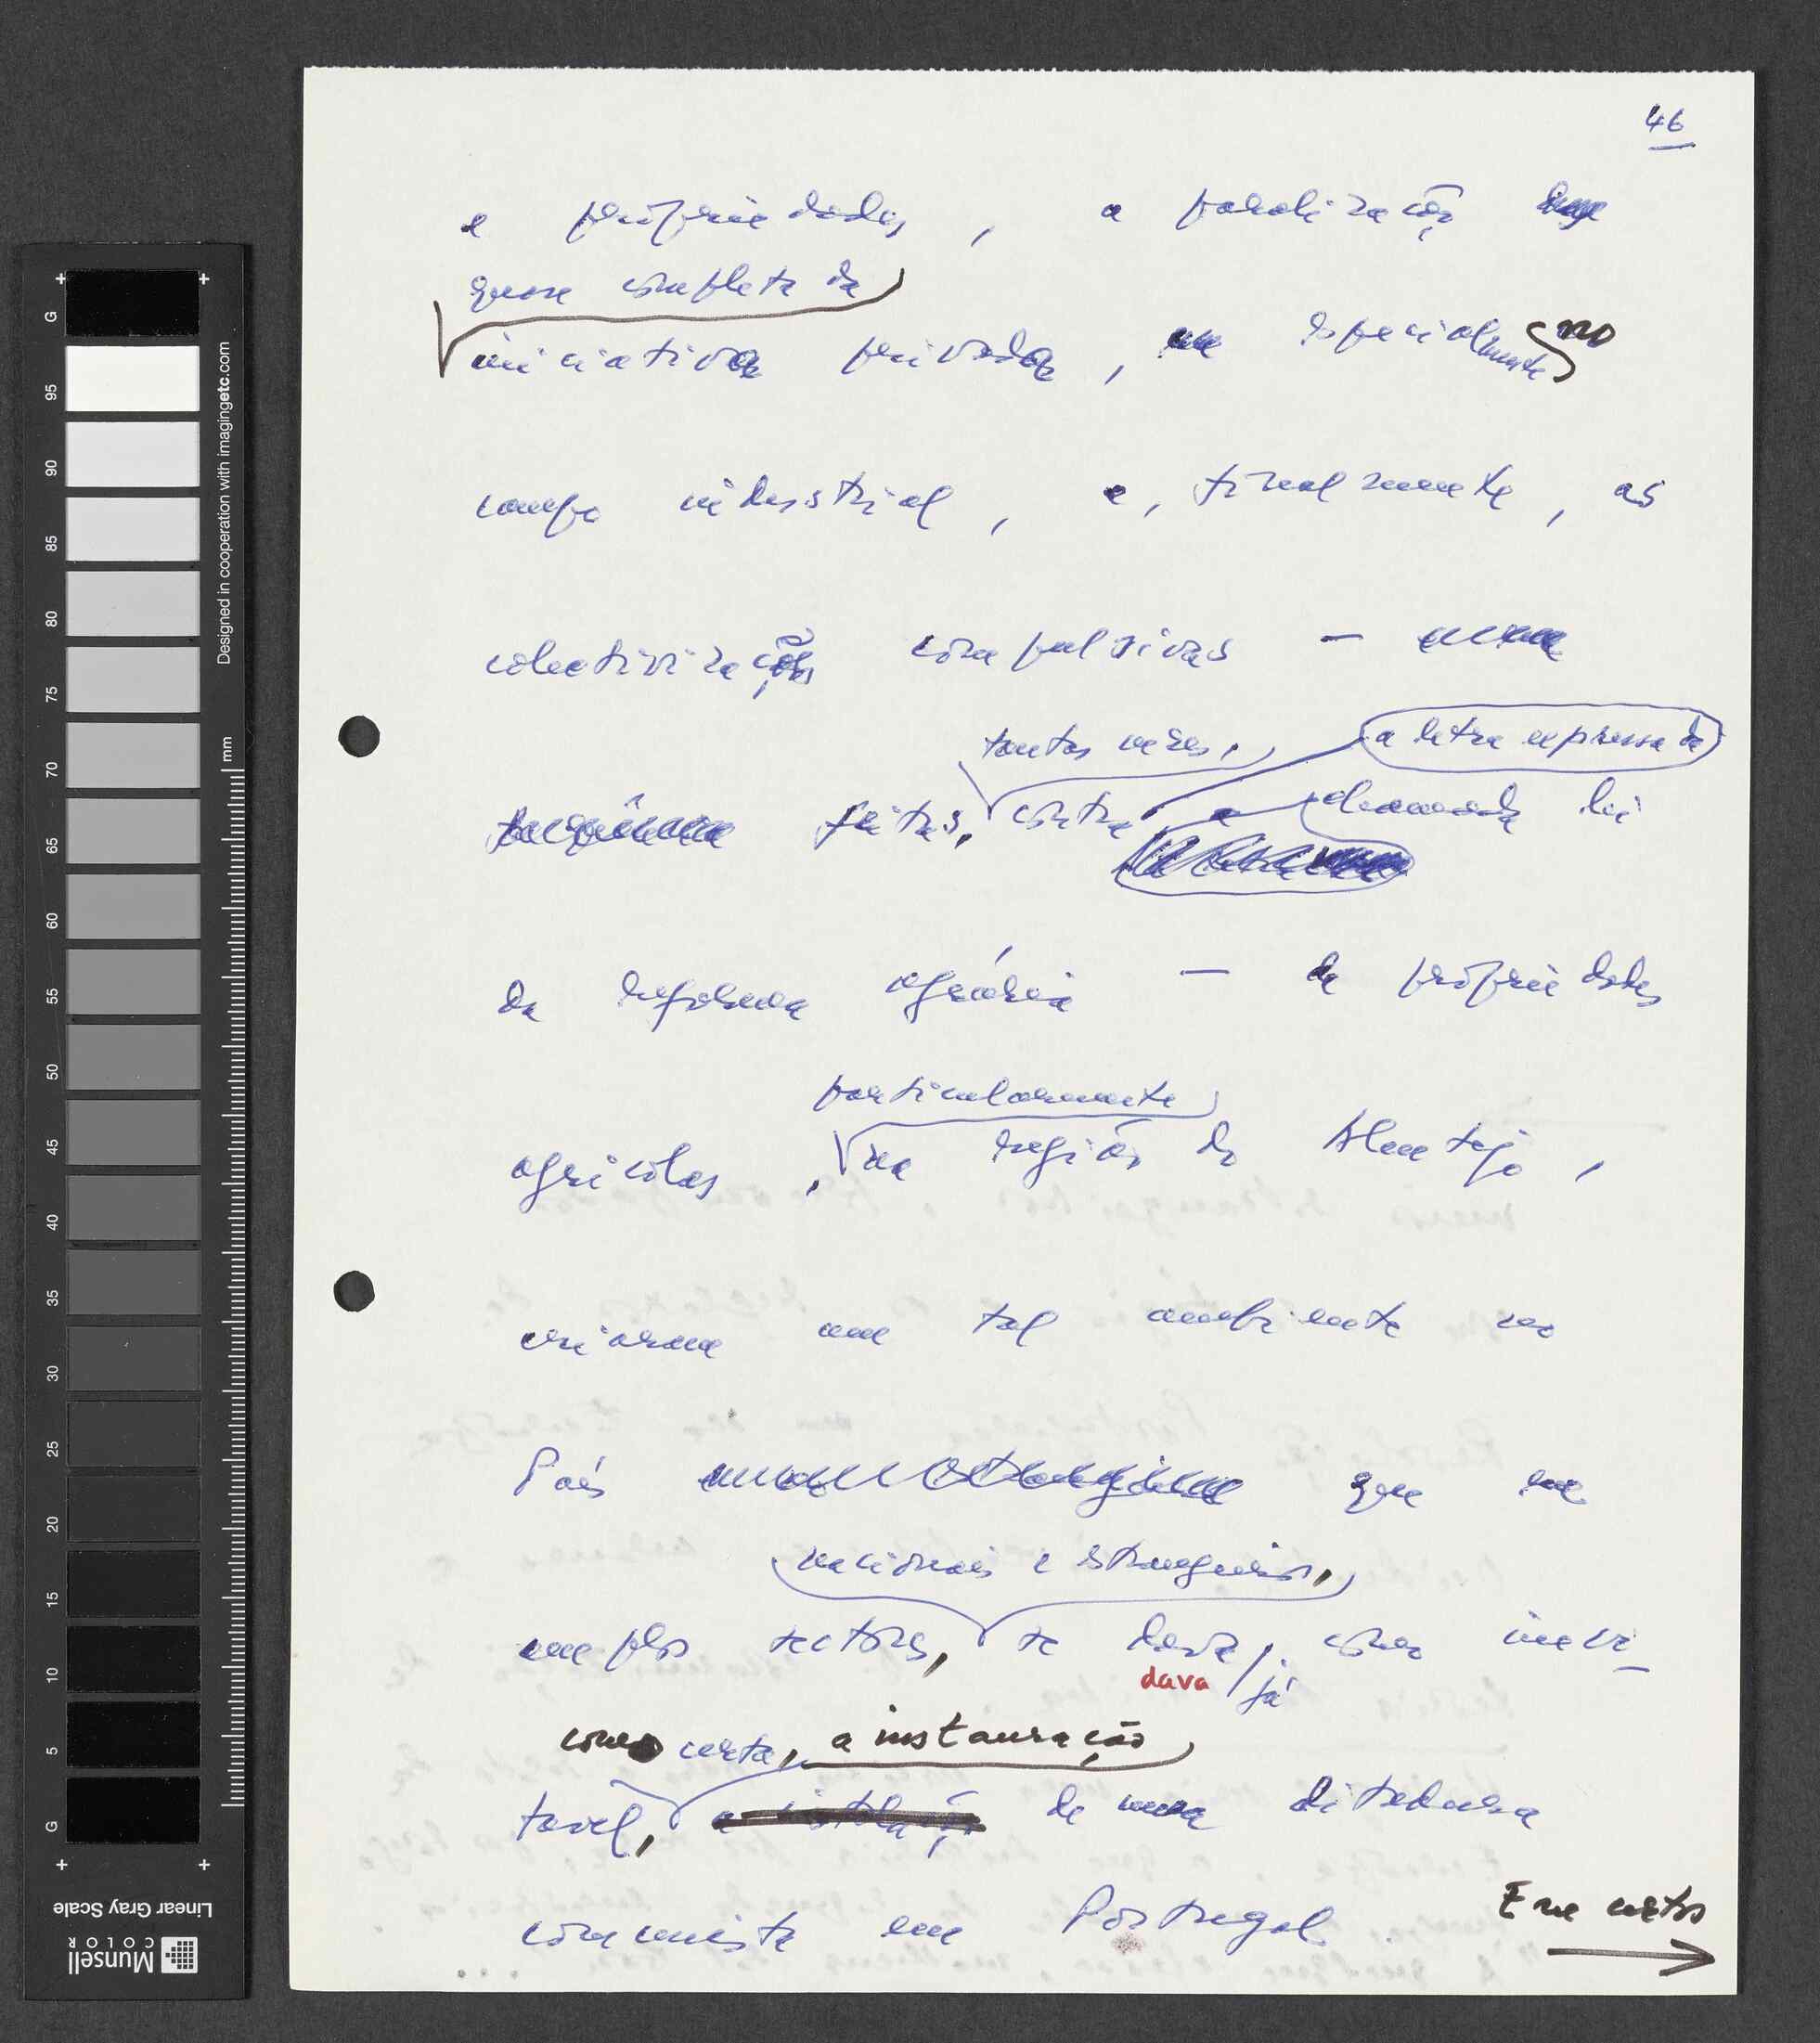 46
e propriedades, a paralização
quase completa da
iniciativa privada, especialmente no
campo industrial, e, finalmente, as
colectivizações compulsivas —
tantas vezes, a letra expressa da
feitas, contra a chamada lei
da reforma agrária — de propriedades
particularmente
agrícolas, na região do Alentejo,
criaram um tal ambiente no
País que em
nacionais e estrangeiros,
amplos sectores, se dava, como inevi-
dava já
como certa, a instauração
tavel, de uma ditadura
comunista em Portugal. E em certos
G
95
90
85
80
75
70
65
60
55
50
45
40
35
30
25
20
15
10
5
G
mm
Designed in cooperation with imagingetc.com
Linear Gray Scale
Munsell
COLOR